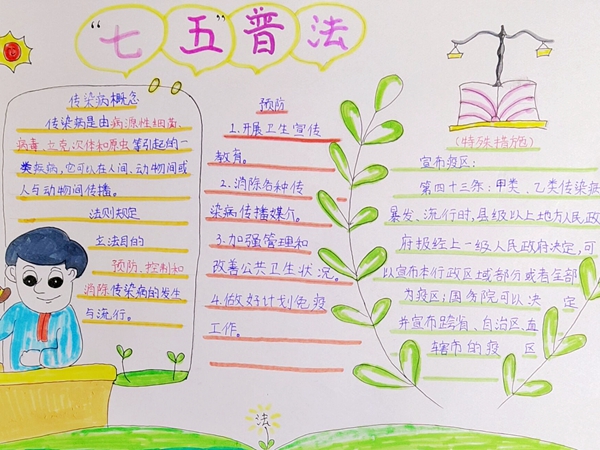 “七五”普法
传染病概念
传染病是由病源性细菌、
病毒、立克次体和原虫等引起的一
类疾病,它可以在人间、动物间或
人与动物间传播。
法则规定
立法目的
预防、控制和
消除传染病的发生
与流行。
预防
1.开展卫生宣传
教育。
2.消除各种传
染病传播媒介。
3.加强管理和
改善公共卫生状况。
4.做好计划免疫
工作。
(特殊措施)
宣布疫区:
第四十三条:甲类、乙类传染病
暴发、流行时,县级以上地方人民政
府报经上一级人民政府决定,可
以宣布本行政区域部分或者全部
为疫区;国务院可以决定
并宣布跨省、自治区、直
辖市的疫区
法